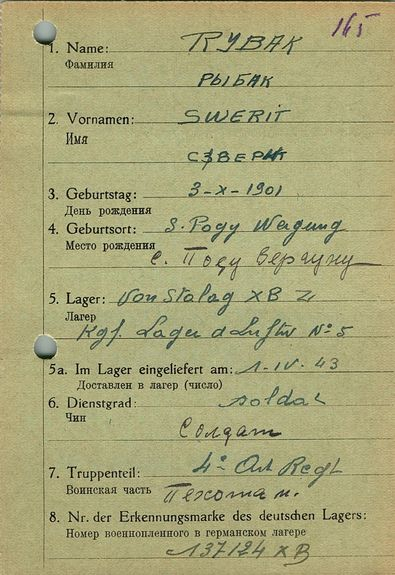 165
1. Name: RYBAK
Фамилия
РЫБАК
2. Vornamen: SWERIT
Имя
3. Geburtstag: 3-X-1901
День рождения
4. Geburtsort: S. Pody Wergung
Место рождения с. Поду Вергуну
5. Lager: Von Stalag XB Z
Лагер
Kgf. Lager d Luftw No 5
5a. Im Lager eingeliefert am: 1-IV-43
Доставлен в лагер (число)
6. Dienstgrad: soldat
Чин
Солдат
7. Truppenteil: 4° Art Regt
Воинская часть Пехота п.
8. Nr. der Erkennungsmarke des deutschen Lagers:
Номер военнопленного в германском лагере
137124 XB